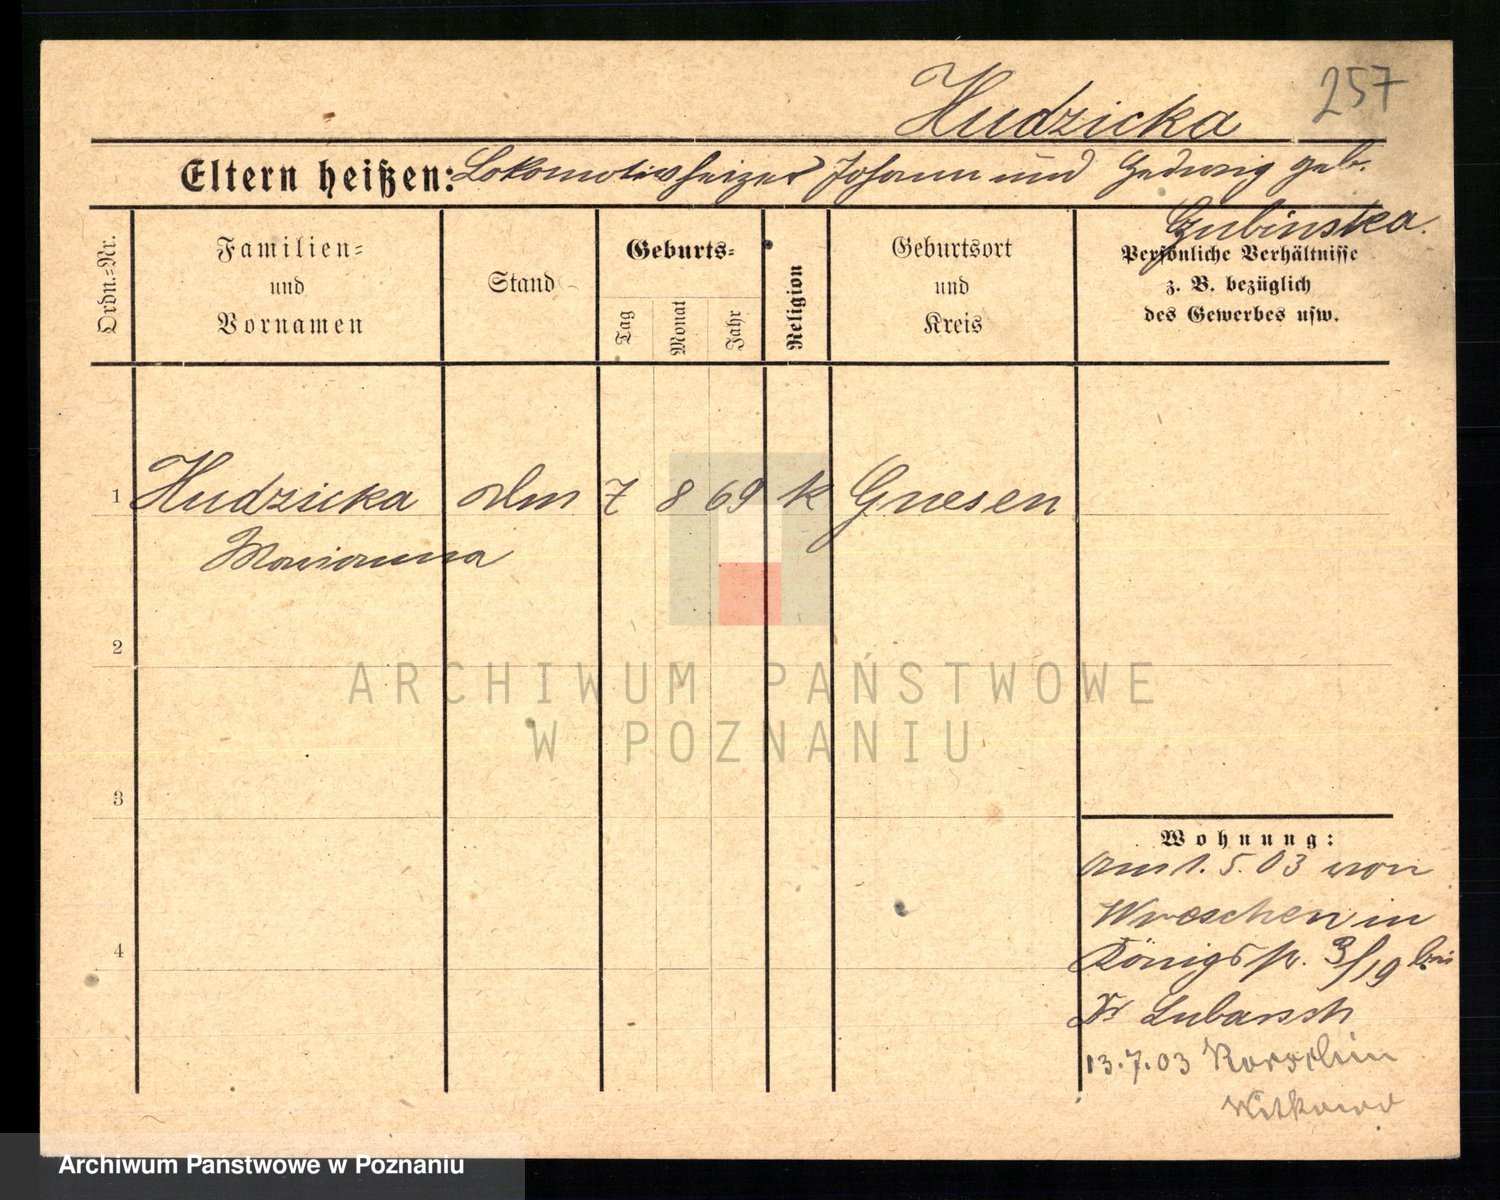 257
Hudzicka
Eltern heißen: Lokomotivheizer Johann und Hedwig geb.
Czubinska.
Ordn.-Nr.
Familien-
und
Vornamen
Stand
Geburts-
Tag
Monat
Jahr
Religion
Geburtsort
und
Kreis
Persönliche Verhältnisse
z. B. bezüglich
des Gewerbes usw.
1 Hudzicka 7 8 69 k Gnesen
Marianna
2
3
4
Wohnung:
am 1. 5. 03 von
Wreschen in
Königspl. 3/19 bei
Dr Lubarsch
13.7.03
Witkowo
ARCHIWUM PAŃSTWOWE
W POZNANIU
Archiwum Państwowe w Poznaniu